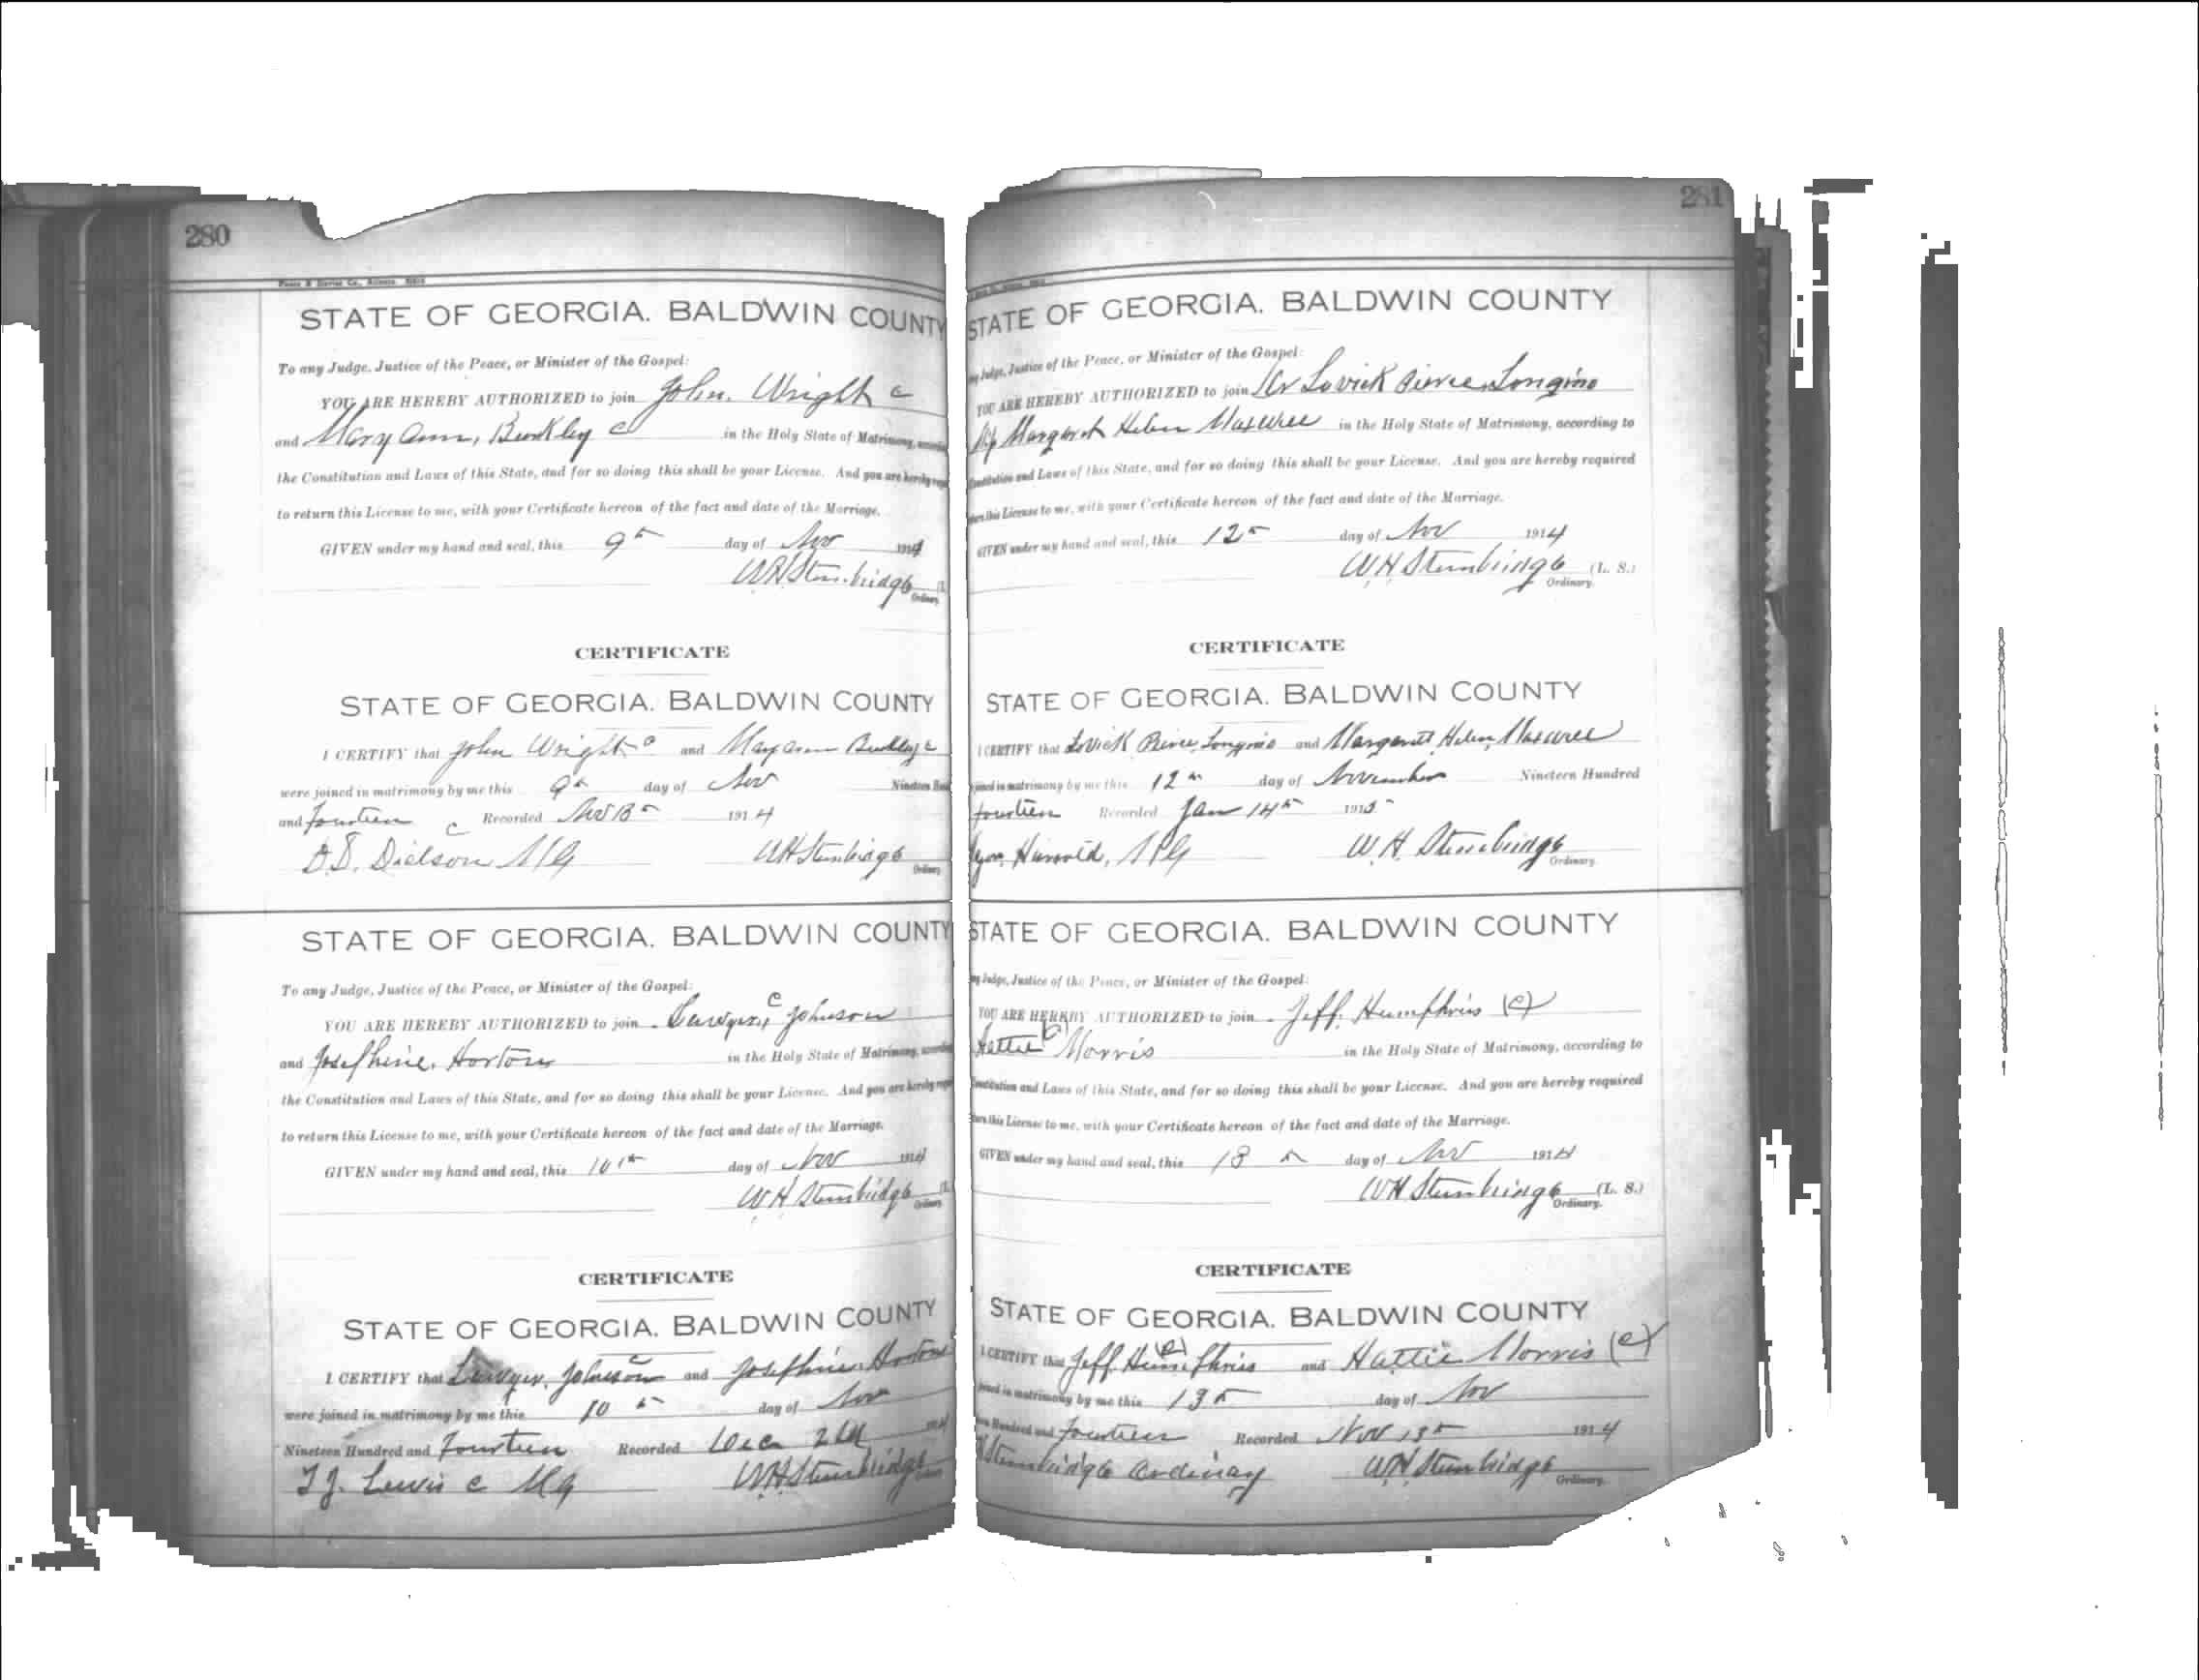 280
STATE OF GEORGIA. BALDWIN COUNTY
To any Judge, Justice of the Peace, or Minister of the Gospel:
YOU ARE HEREBY AUTHORIZED to join John Wright c
and Mary Ann, c in the Holy State of Matrimony,
the Constitution and Laws of this State, and for so doing this shall be your License. And you are hereby
to return this License to me, with your Certificate hereon of the fact and date of the Marriage.
GIVEN under my hand and seal, this 9th day of Nov 1914
W H Stembridge
Ordinary
CERTIFICATE
STATE OF GEORGIA. BALDWIN COUNTY
I CERTIFY that John Wright c and Mary Ann c
were joined in matrimony by me this 9th day of Nov Nineteen
and fourteen Recorded Nov 1914
c
M G W H Stembridge
Ordinary
STATE OF GEORGIA. BALDWIN COUNTY
To any Judge, Justice of the Peace, or Minister of the Gospel:
YOU ARE HEREBY AUTHORIZED to join c Johnson
and Josephine Horton in the Holy State of Matrimony,
the Constitution and Laws of this State, and for so doing this shall be your License. And you are hereby
to return this License to me, with your Certificate hereon of the fact and date of the Marriage.
GIVEN under my hand and seal, this 10th day of Nov 1914
W H Stembridge
Ordinary
CERTIFICATE
STATE OF GEORGIA. BALDWIN COUNTY
I CERTIFY that Johnson c and Josephine Horton
were joined in matrimony by me this 10th day of Nov
Nineteen Hundred and Fourteen Recorded Dec 1914
T J. Lewis c M G W H Stembridge
281
STATE OF GEORGIA. BALDWIN COUNTY
Judge, Justice of the Peace, or Minister of the Gospel:
YOU ARE HEREBY AUTHORIZED to join Lovick Pierce Longino
Margaret Helen in the Holy State of Matrimony, according to
Constitution and Laws of this State, and for so doing this shall be your License. And you are hereby required
this License to me, with your Certificate hereon of the fact and date of the Marriage.
GIVEN under my hand and seal, this 12th day of Nov 1914
W H Stembridge (L. S.)
Ordinary.
CERTIFICATE
STATE OF GEORGIA. BALDWIN COUNTY
I CERTIFY that Lovick Pierce Longino and Margaret Helen
joined in matrimony by me this 12th day of November Nineteen Hundred
fourteen Recorded Jan 14th 1915
W. H. Stembridge
Ordinary
STATE OF GEORGIA. BALDWIN COUNTY
Judge, Justice of the Peace, or Minister of the Gospel:
YOU ARE HEREBY AUTHORIZED to join Jeff Humphries (c)
Hattie (c) Morris in the Holy State of Matrimony, according to
Constitution and Laws of this State, and for so doing this shall be your License. And you are hereby required
this License to me, with your Certificate hereon of the fact and date of the Marriage.
GIVEN under my hand and seal, this 13th day of Nov 1914
W H Stembridge (L. S.)
Ordinary.
CERTIFICATE
STATE OF GEORGIA. BALDWIN COUNTY
I CERTIFY that Jeff Humphries (c) and Hattie Morris (c)
joined in matrimony by me this 13th day of Nov
Hundred and fourteen Recorded Nov 13th 1914
Stembridge Ordinary W H Stembridge
Ordinary.